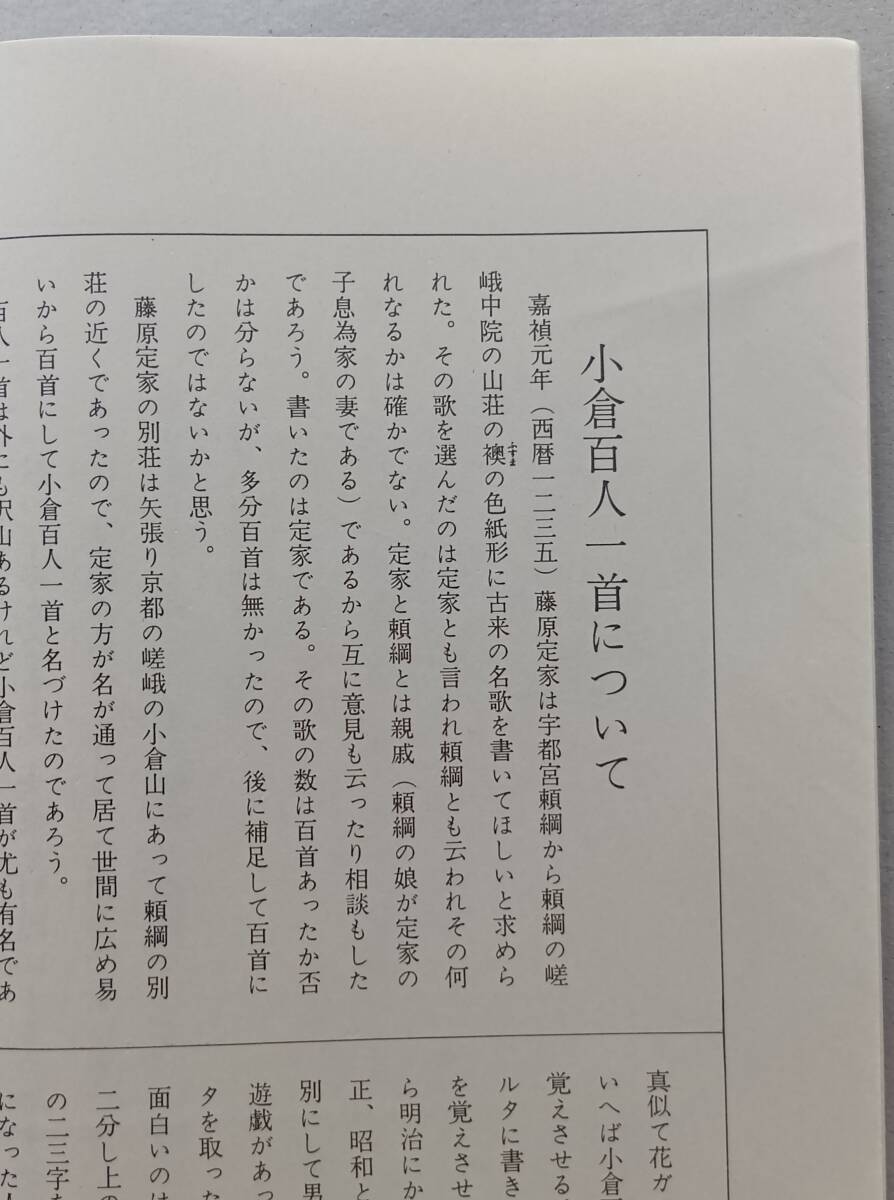 小倉百人一首について
嘉禎元年（西暦一二三五）藤原定家は宇都宮頼綱から頼綱の嵯
峨中院の山荘の襖の色紙形に古来の名歌を書いてほしいと求めら
ふすま
れた。その歌を選んだのは定家とも言われ頼綱とも云われその何
れなるかは確かでない。定家と頼綱とは親戚（頼綱の娘が定家の
子息為家の妻である）であるから互に意見も云ったり相談もした
であろう。書いたのは定家である。その歌の数は百首あったか否
かは分らないが、多分百首は無かったので、後に補足して百首に
したのではないかと思う。
藤原定家の別荘は矢張り京都の嵯峨の小倉山にあって頼綱の別
荘の近くであったので、定家の方が名が通って居て世間に広め易
いから百首にして小倉百人一首と名づけたのであろう。
百人一首は外にも沢山あるけれど小倉百人一首が尤も有名であ
真似て花ガ
いへば小倉
覚えさせる
ルタに書き
を覚えさせ
ら明治にか
正、昭和と
別にして男
遊戯があっ
タを取った
面白いのは
二分し上の
の二三字を
になった人